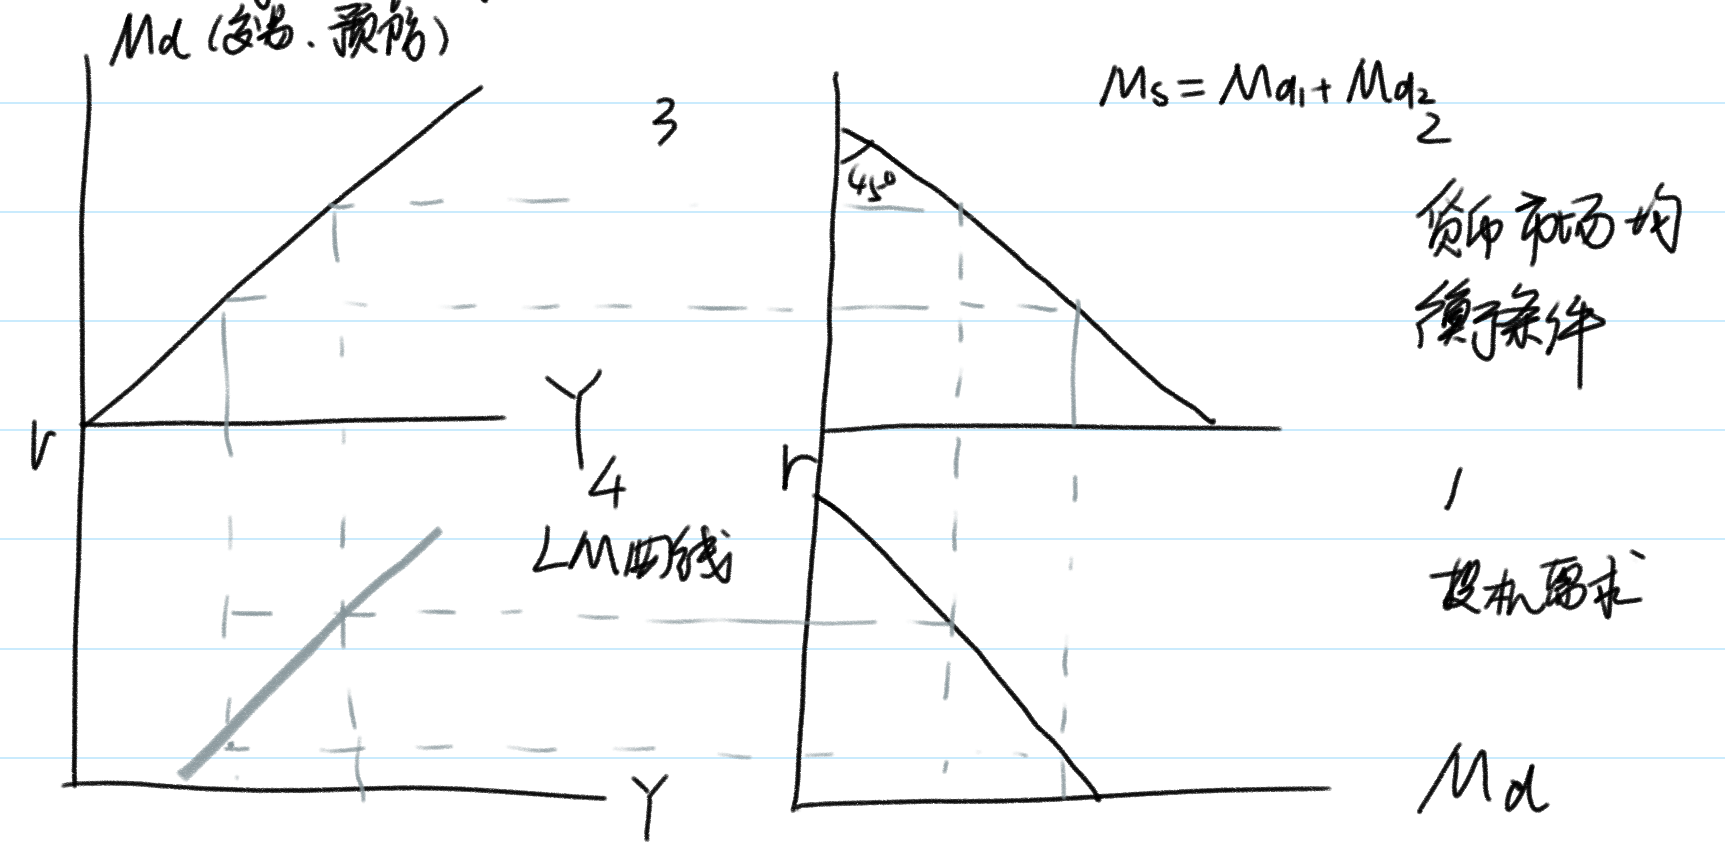 Md (交易、预防)
3
Ms = Md1 + Md2
2
45°
货币市场均
衡条件
Y
r
4
LM曲线
r
1
投机需求
Y
Md